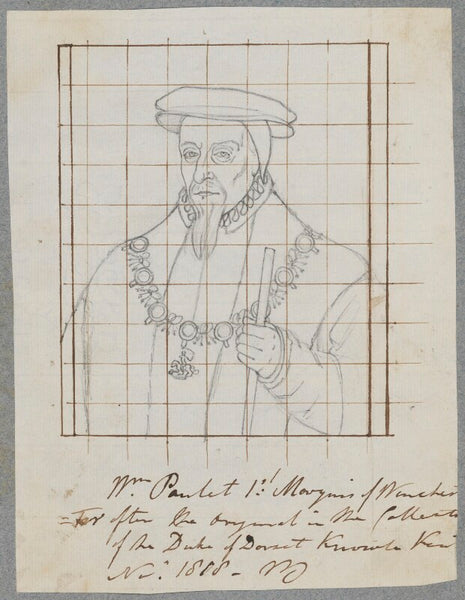 Wm Paulet 1st Marquis of Winches
=ter after the original in the Collecti
of the Duke of Dorset Knowle Ken
1818